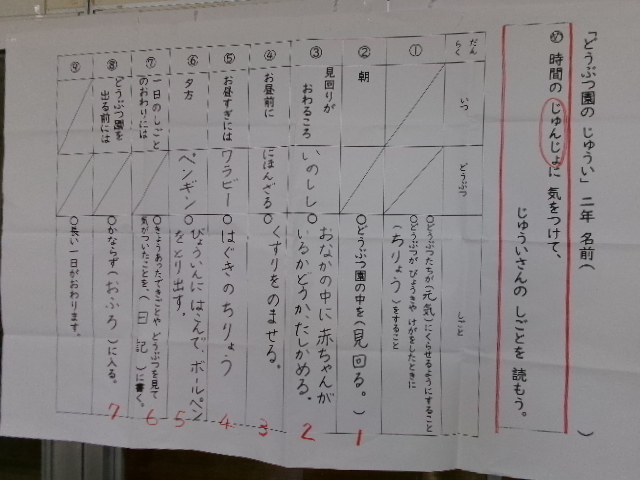 「どうぶつ園の じゅうい」 二年 名前( )
め 時間の じゅんじょに 気をつけて、
じゅういさんの しごとを 読もう。
だんらく
いつ
どうぶつ
しごと
①
○どうぶつたちが(元気)にくらせるようにすること
○どうぶつが びょうきや けがをしたときに
(ちりょう)をすること
②
朝
○どうぶつ園の中を(見回る。)
1
③
見回りが
おわるころ
いのしし
○おなかの中に 赤ちゃんが
いるかどうか、たしかめる。
2
④
お昼前に
にほんざる
○くすりをのませる。
3
⑤
お昼すぎには
ワラビー
○はぐきのちりょう
4
⑥
夕方
ペンギン
○びょういんにはこんで、ボールペン
をとり出す。
5
⑦
一日のしごと
のおわりには
○きょうあったできごとや どうぶつを見て
気がついたことを、(日記)に書く。
6
⑧
どうぶつ園を
出る前には
○かならず(おふろ)に入る。
7
⑨
○長い一日がおわります。